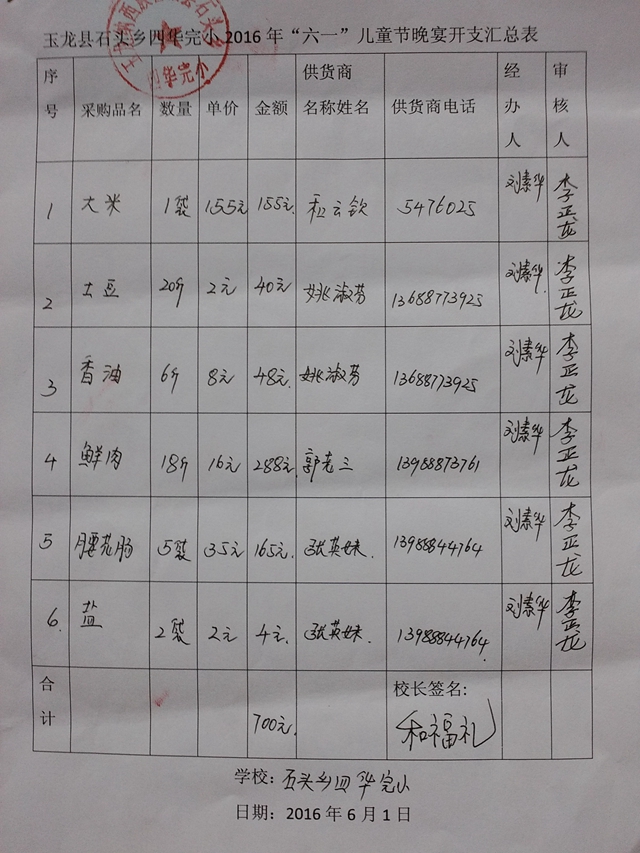 玉龙县石头乡四华完小2016年“六一”儿童节晚宴开支汇总表
序号 采购品名 数量 单价 金额 供货商名称姓名 供货商电话 经办人 审核人
1 大米 1袋 155元 155元. 和云钦 5476025 刘素华 李正龙
2 土豆 20斤 2元 40元 姚淑芬 13688773925 刘素华 李正龙
3 香油 6斤 8元 48元 姚淑芬 13688773925 刘素华 李正龙
4 鲜肉 18斤 16元 288元 郭老三 13988873761 刘素华 李正龙
5 腰花肠 5袋 35元 165元 张英妹. 13988844764 刘素华 李正龙
6. 盐 2袋 2元 4元. 张英妹. 13988844764. 刘素华 李正龙
合计 700元. 校长签名: 和福礼
学校: 石头乡四华完小
日期: 2016年6月1日
四华完小